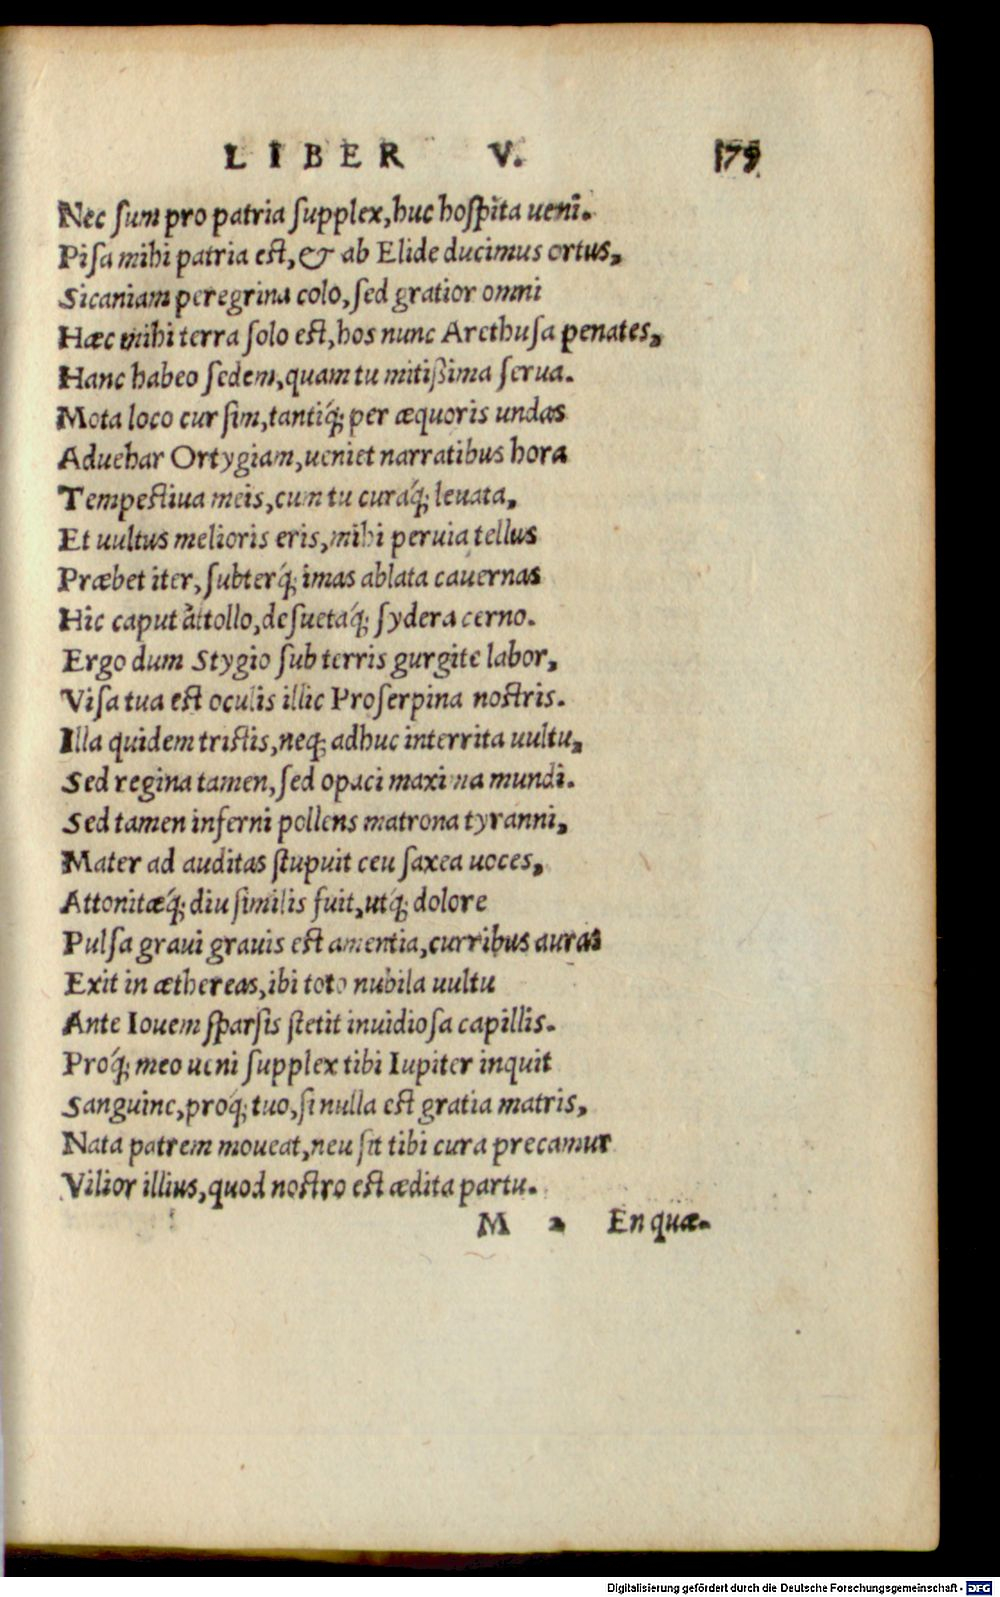 LIBER V. 179
Nec ſum pro patria ſupplex, huc hoſpita ueni.
Piſa mihi patria eſt, & ab Elide ducimus ortus,
Sicaniam peregrina colo, ſed gratior omni
Hæc mihi terra ſolo eſt, hos nunc Arethuſa penates,
Hanc habeo ſedem, quam tu mitißima ſerua.
Mota loco cur ſim, tantiq́; per æquoris undas
Aduehar Ortygiam, ueniet narratibus hora
Tempeſtiua meis, cum tu curaq́; leuata,
Et uultus melioris eris, mihi peruia tellus
Præbet iter, ſubterq́; imas ablata cauernas
Hic caput attollo, deſuetaq́; ſydera cerno.
Ergo dum Stygio ſub terris gurgite labor,
Viſa tua eſt oculis illic Proſerpina noſtris.
Illa quidem triſtis, neq; adhuc interrita uultu,
Sed regina tamen, ſed opaci maxima mundi.
Sed tamen inferni pollens matrona tyranni,
Mater ad auditas ſtupuit ceu ſaxea uoces,
Attonitæq́; diu ſimilis fuit, utq́; dolore
Pulſa graui grauis eſt amentia, curribus auras
Exit in æthereas, ibi toto nubila uultu
Ante Iouem ſparſis ſtetit inuidioſa capillis.
Proq́; meo ueni ſupplex tibi Iupiter inquit
Sanguine, proq́; tuo, ſi nulla eſt gratia matris,
Nata patrem moueat, neu ſit tibi cura precamur
Vilior illius, quod noſtro eſt ædita partu.
M 2 En quæ.
Digitalisierung gefördert durch die Deutsche Forschungsgemeinschaft - DFG